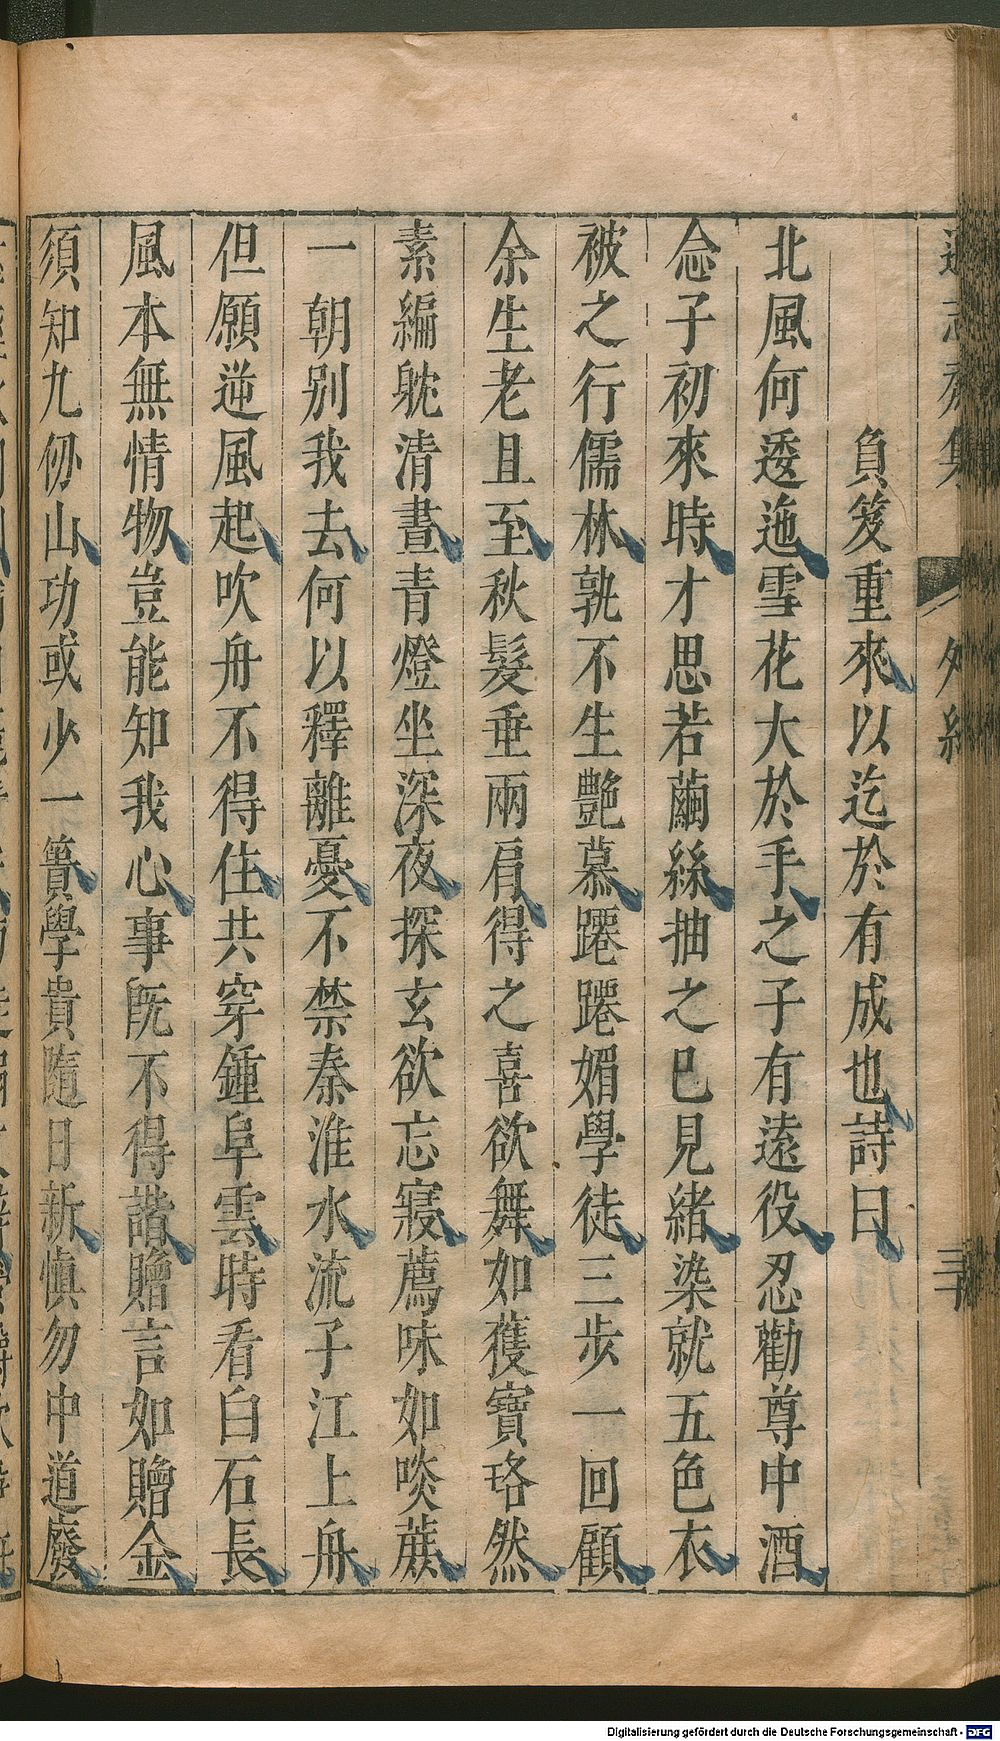 負笈重來以迄於有成也詩曰
北風何逶迤雪花大於手之子有遠役忍勸尊中酒
念子初來時才思若繭絲抽之已見緒染就五色衣
被之行儒林孰不生艶慕蹮蹮媚學徒三步一回顧
余生老且至秋髮垂兩肩得之喜欲舞如獲寶珞然
素編躭清晝青燈坐深夜探玄欲忘寢薦味如啖蔗
一朝別我去何以釋離憂不禁秦淮水流子江上舟
但願逆風起吹舟不得住共穿鍾阜雲時看白石長
風本無情物豈能知我心事既不得諧贈言如贈金
須知九仞山功或少一簣學貴隨日新慎勿中道廢
Digitalisierung gefördert durch die Deutsche Forschungsgemeinschaft - DFG